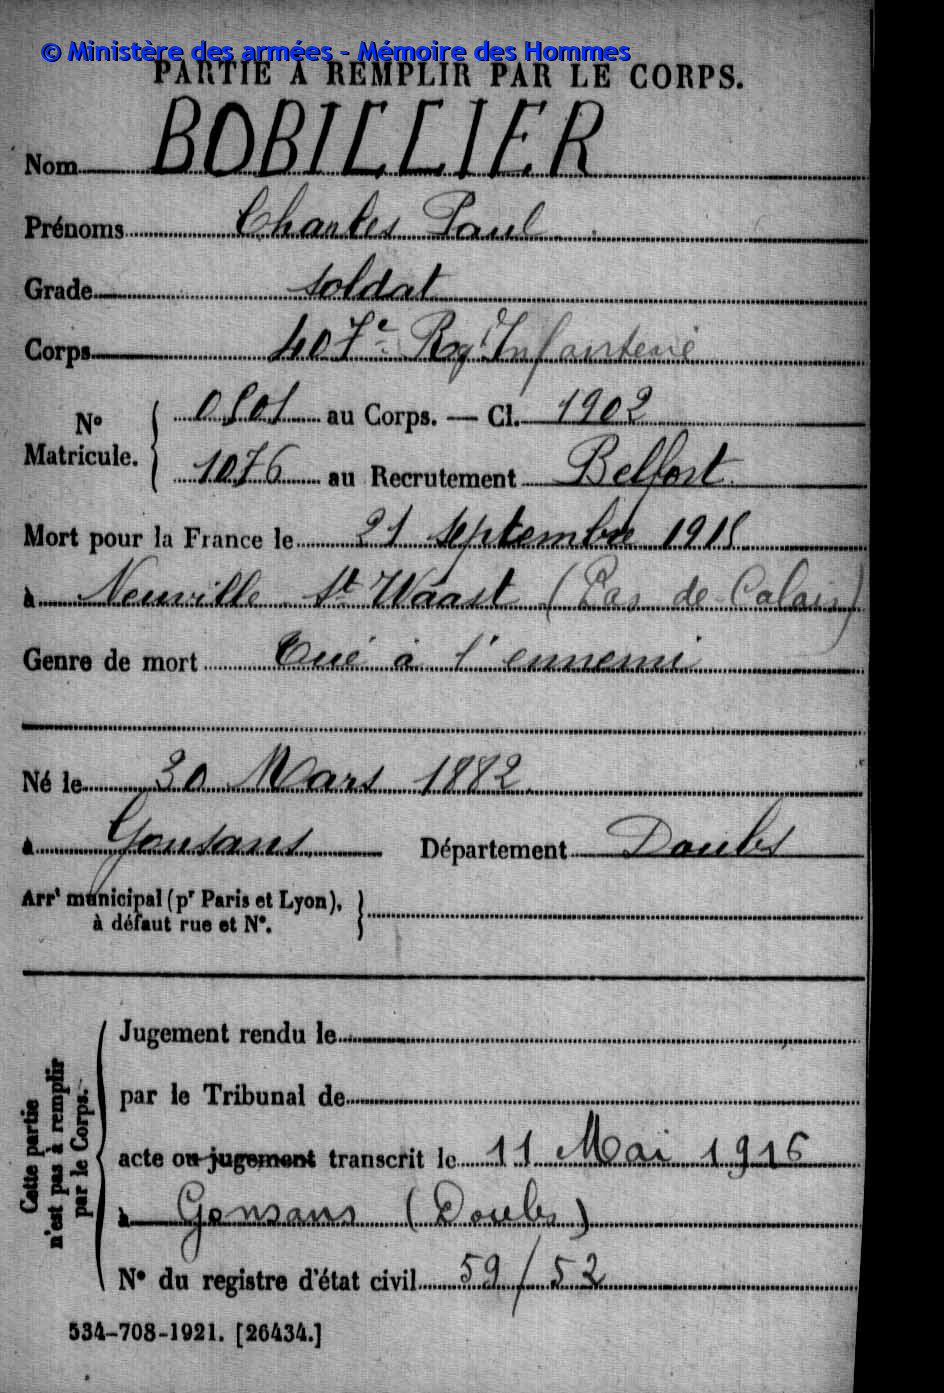 © Ministère des armées - Mémoire des Hommes
PARTIE À REMPLIR PAR LE CORPS.
Nom BOBILLIER
Prénoms Charles Paul
Grade soldat
Corps 407e Rgt d'Infanterie
No Matricule. { 0501 au Corps. — Cl. 1902
1076 au Recrutement Belfort
Mort pour la France le 21 septembre 1915
à Neuville St Waast (Pas de Calais)
Genre de mort Tué à l'ennemi
Né le 30 Mars 1882
à Gonsans Département Doubs
Arrt municipal (pr Paris et Lyon),
à défaut rue et No.
Cette partie
n'est pas à remplir
par le Corps.
Jugement rendu le
par le Tribunal de
acte ou jugement transcrit le 11 Mai 1916
à Gonsans (Doubs)
No du registre d'état civil 59/52
534-708-1921. [26434.]